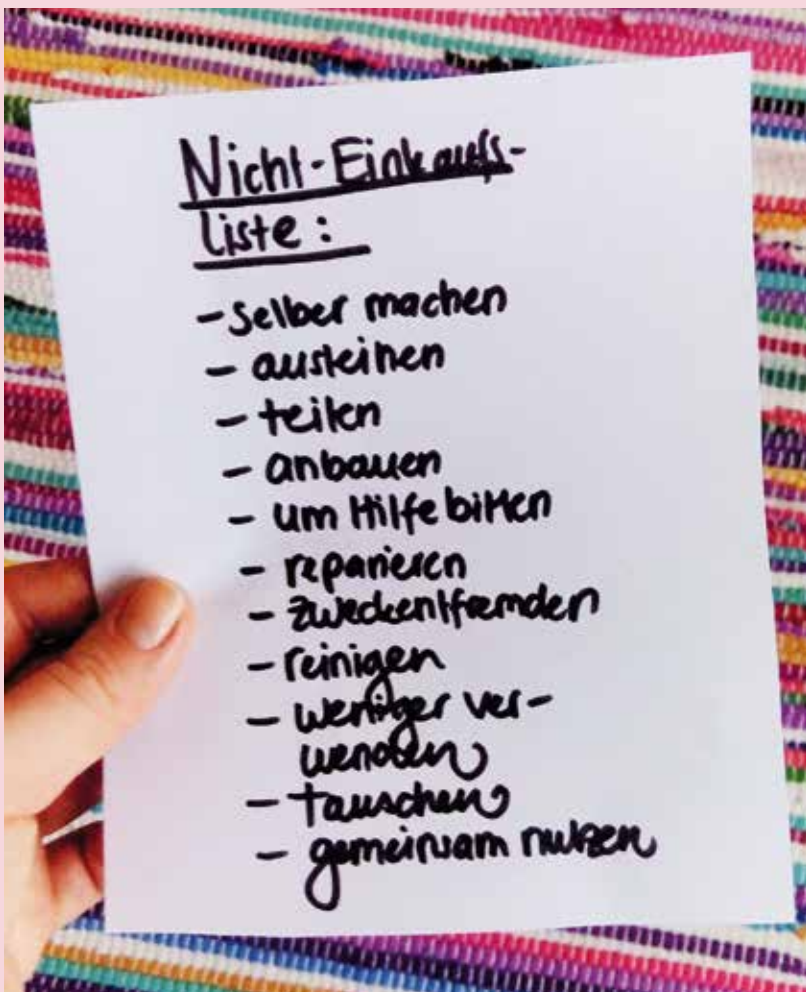 Nicht-Einkaufs-
Liste:
- selber machen
- ausleihen
- teilen
- anbauen
- um Hilfe bitten
- reparieren
- zweckentfremden
- reinigen
- weniger ver-
wenden
- tauschen
- gemeinsam nutzen